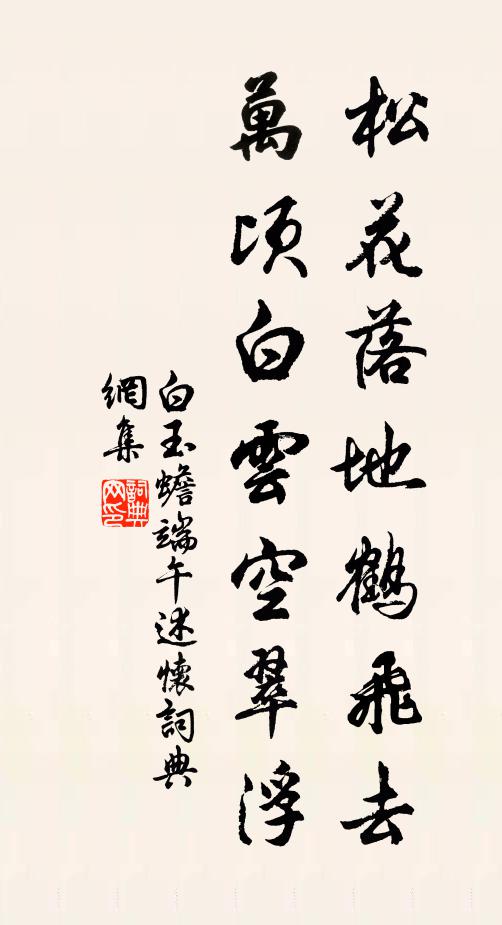 松花落地鶴飛去
萬頃白雲空翠浮
白玉蟾端午述懷詞典
網集
詞典
网印